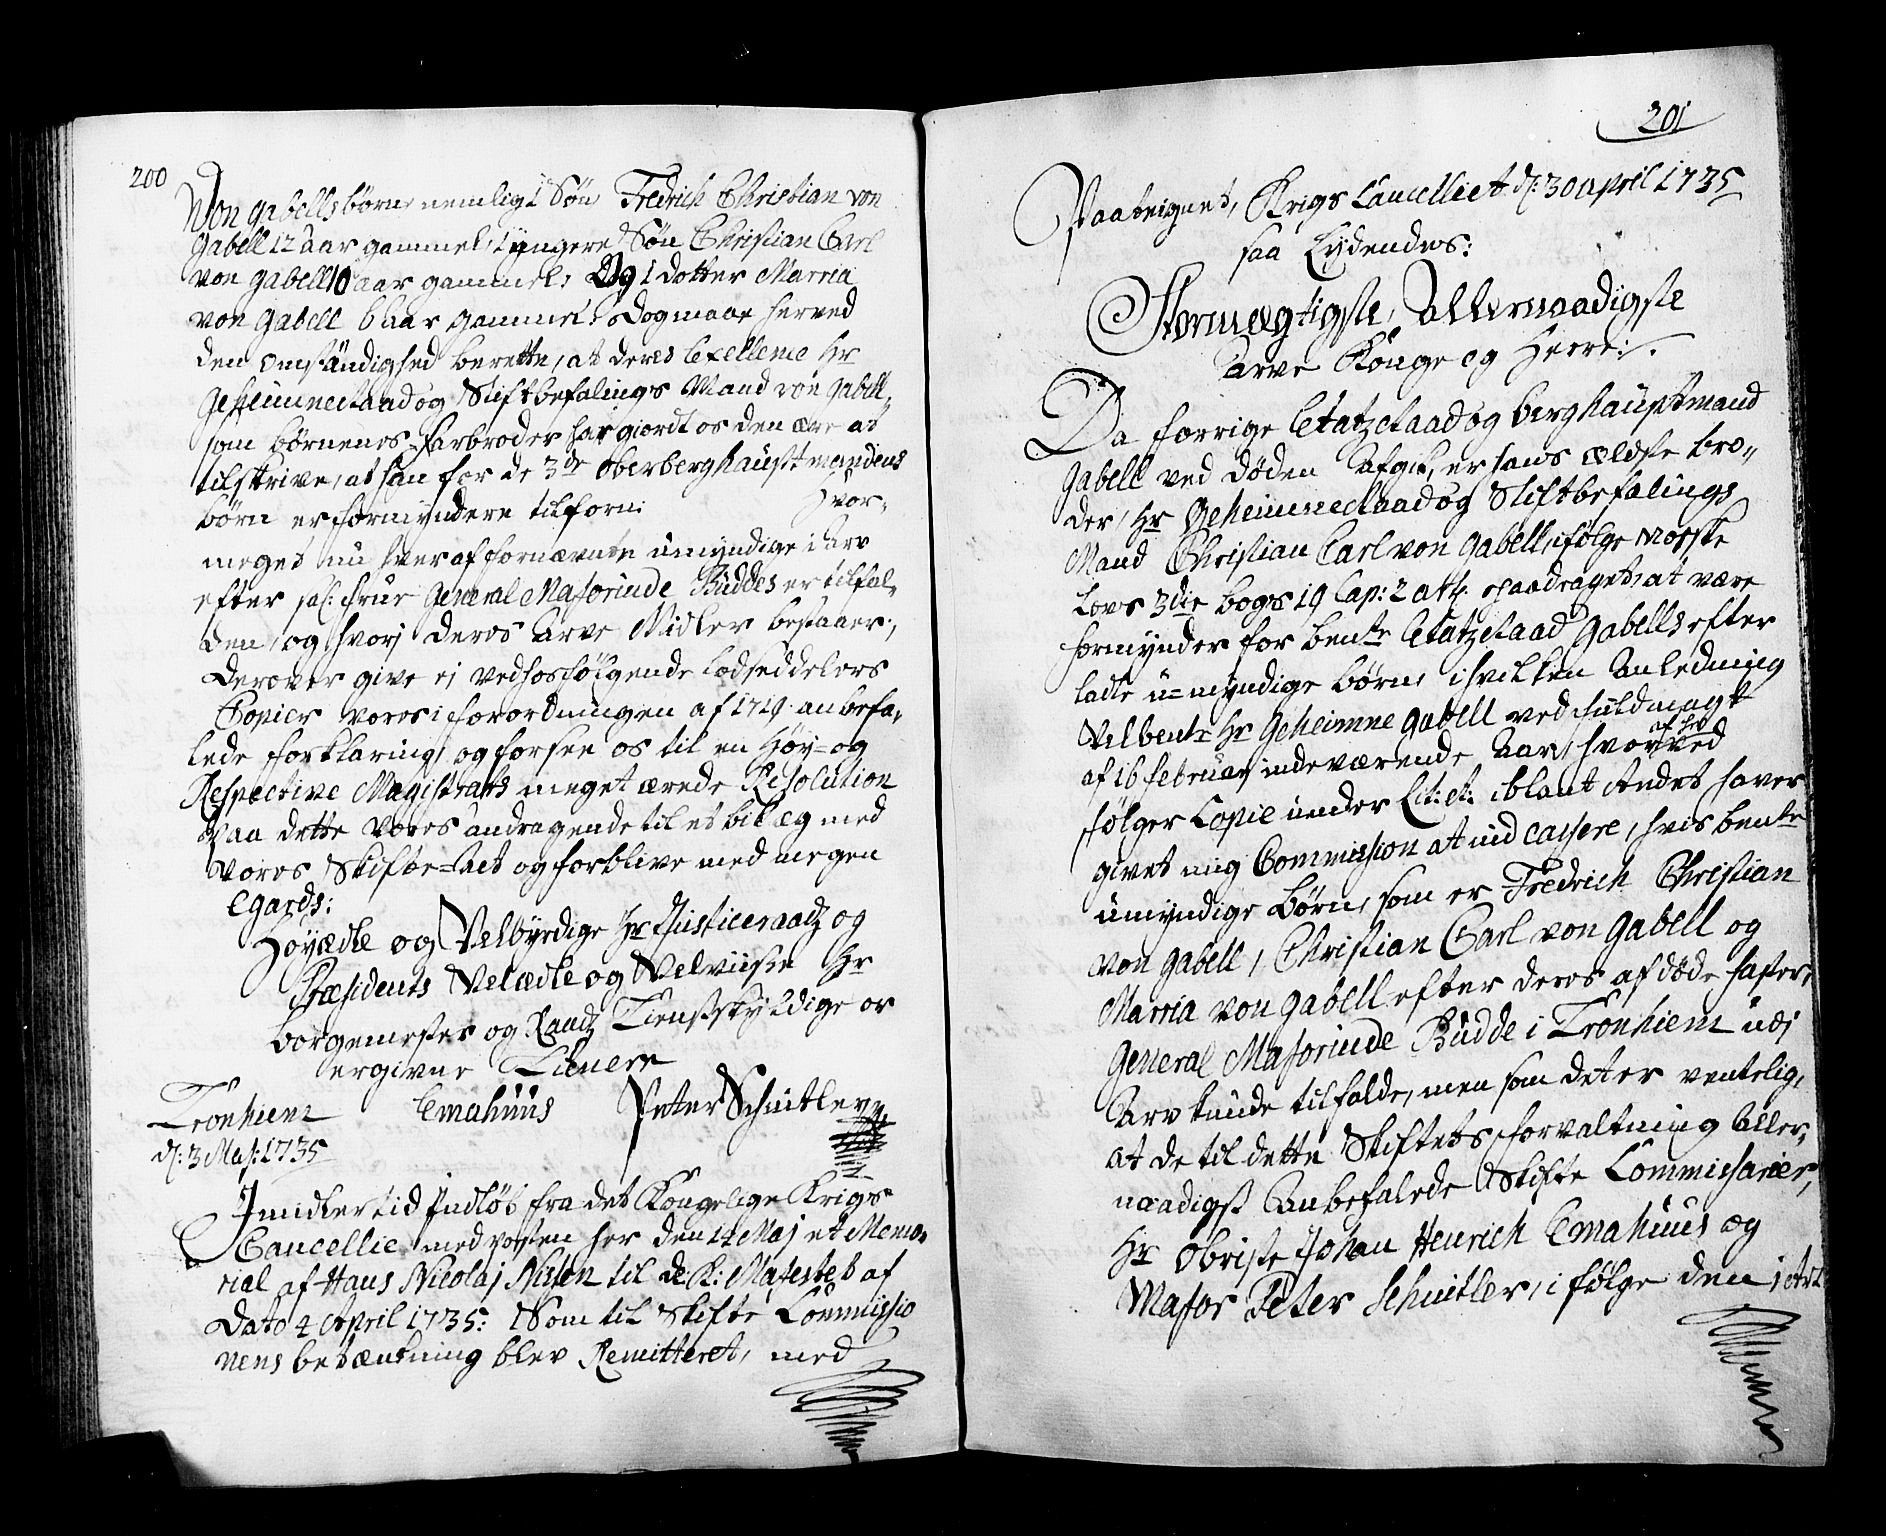 200
Von Gabells børn, nemlig 1 Søn Fredrich Christian von
Gabell 12 aar gammel, 1 yngere Søn Christian Carl
von Gabell 10 aar gammel, Og 1 dotter Marria
von Gabell 6 aar gammel. Dog maae herved
den omständighed berette, at deres Excellence Hr
Geheimme Raad og Stiftbefalings Mand von Gabell,
som børnenes Farbroder har giordt os den ære at
tilskrive, at han for de 3de Oberberghaupt mandens
børn er formyndere tilforn: Hvor-
meget nu hver af fornævnte umyndige i arv
efter sal: Frue General Majorinde Buddes er tilfal-
den, og hvorj deres Arve Midler bestaaer,
derover give ej vedhosfølgende Lodseddelers
Copier voresi forordningen af 1719 anbefa-
lede forklaring, og forsee os til en Høy- og
Respective Magistrats meget ærede Resolution
paa dette vores andragende til et bilæg med
vores Skifte-Act og forblive med megen
Egards:
Høyædle og Velbyrdige Hr Justiceraad og
Præsidents Velædle og Velviise Hr
borgemester og Raadz Tienstskyldige or
ergivne Tienere
Tronhiem Emahuus Peter Schnitler
d: 3 Maj: 1735
Imidlertid Indløb fra det Kongelige Krigs
Cancellie med posten her den 14 Maj et Memo-
rial af Hans Nicolaj Nissen til de K: Majestet af
Dato 4 April 1735: Som til Skifte Commissio
nens betænkning blev Remitteret, med
201
Paateignet, Krigs Cancelliet d: 30 April 1735
saa Lydendes:
Stormægtigste, Allernaadigste
Arve Konge og Herre:
Da forrige Etatz Raad og berghauptmand
Gabell ved døden Afgik, er hans ældste bro-
der, Hr Geheimme Raad og Stiftbefalings
Mand Christian Carl von Gabell, ifølge Norske
Lovs 3die bogs 19 Cap: 2 art. paadraget, at være
formynder for bente Etatz Raad Gabells efter
ladte u-myndige børn, i hvilken Anledning
Velbente Hr Geheimme Gabell ved fuldmagt
af 16 Februar indeværende Aar, hvoraf her ved
følger Copie under Lit: A: iblant Andet haver
givet mig Commission at ind cassere, hvis bente
umyndige børn, som er Fredrich Christian
von Gabell, Christian Carl von Gabell og
Marria von Gabell efter deres afdøde faster,
General Majorinde Budde i Tronhiem udj
Arv kunde tilfalde, men som det er ventelig,
at de til dette Skiftets forvaltning Aller-
naadigst Anbefalede Skifte Commissarier,
Hr Obriste Johan Henrich Emahuus og
Major Peter Schnitler, i følge den 1 Art